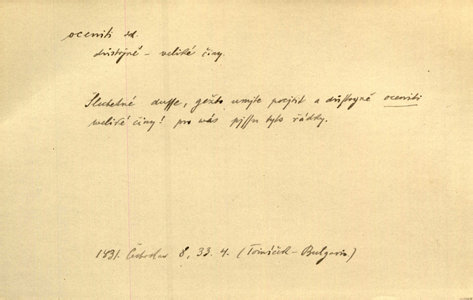 oceniti dk.
důstojně – veliké činy.
Šlechetné dusse, gežto umjte pocjtit a důstogně oceniti
weliké činy! pro wás pjssu tyto řádky.
1831. Čechoslav 8, 33. 4. (Tomíček – Bulgarin)